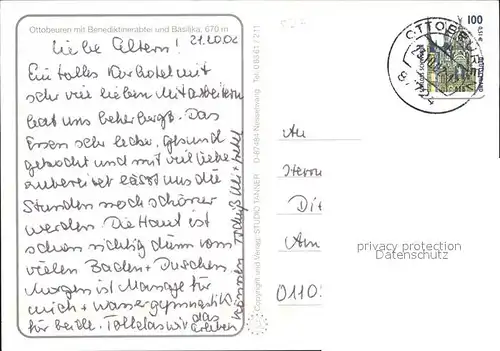 Ottobeuren mit Benediktinerabtei und Basilika, 670 m
Liebe Eltern! 21.10.00
Ein tolles Kurhotel mit
sehr viel lieben Mitarbeitern
hat uns beherbergt. Das
Essen sehr lecker, gesund
gekocht und mit viel Liebe
zubereitet lässt uns die
Stunden noch schöner
werden. Die Haut ist
schon richtig dünn vom
vielen Baden + Duschen.
Morgen ist Massage für
mich + Wassergymnastik
für beide. Toll dass wir das
erleben
können Tschüß Uli +
Copyright und Verlag: STUDIO TANNER D-87481 Nesselwang Tel. 08361/211
OTTOBEUREN
87724
100
An
Herrn
Di
Am
0110
privacy protection
Datenschutz